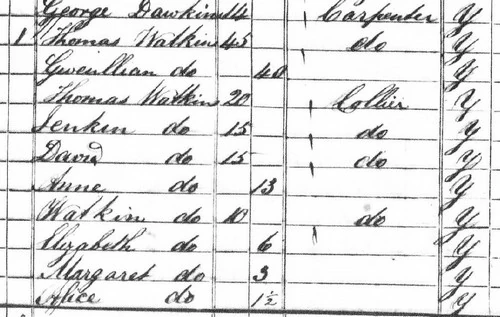 George Dawkins 14 Carpenter Y
1 Thomas Watkins 45 do Y
Gwenllian do 40 Y
Thomas Watkins 20 Collier Y
Jenkin do 15 do Y
David do 15 do Y
Anne do 13 Y
Watkin do 10 do Y
Elizabeth do 6 Y
Margaret do 3 Y
Alice do 1½ Y